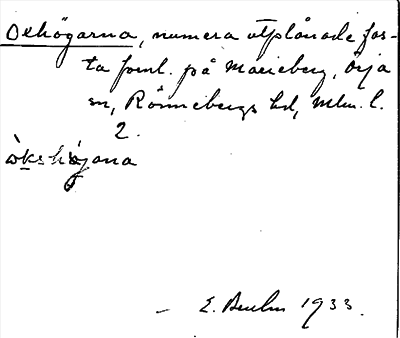 Oehögarna, numera utplånade fas-
ta forml. på Marieberg, Örja
sn, Rönnebergs hd, Mlm. l.
2.
E. Bruhn 1933.